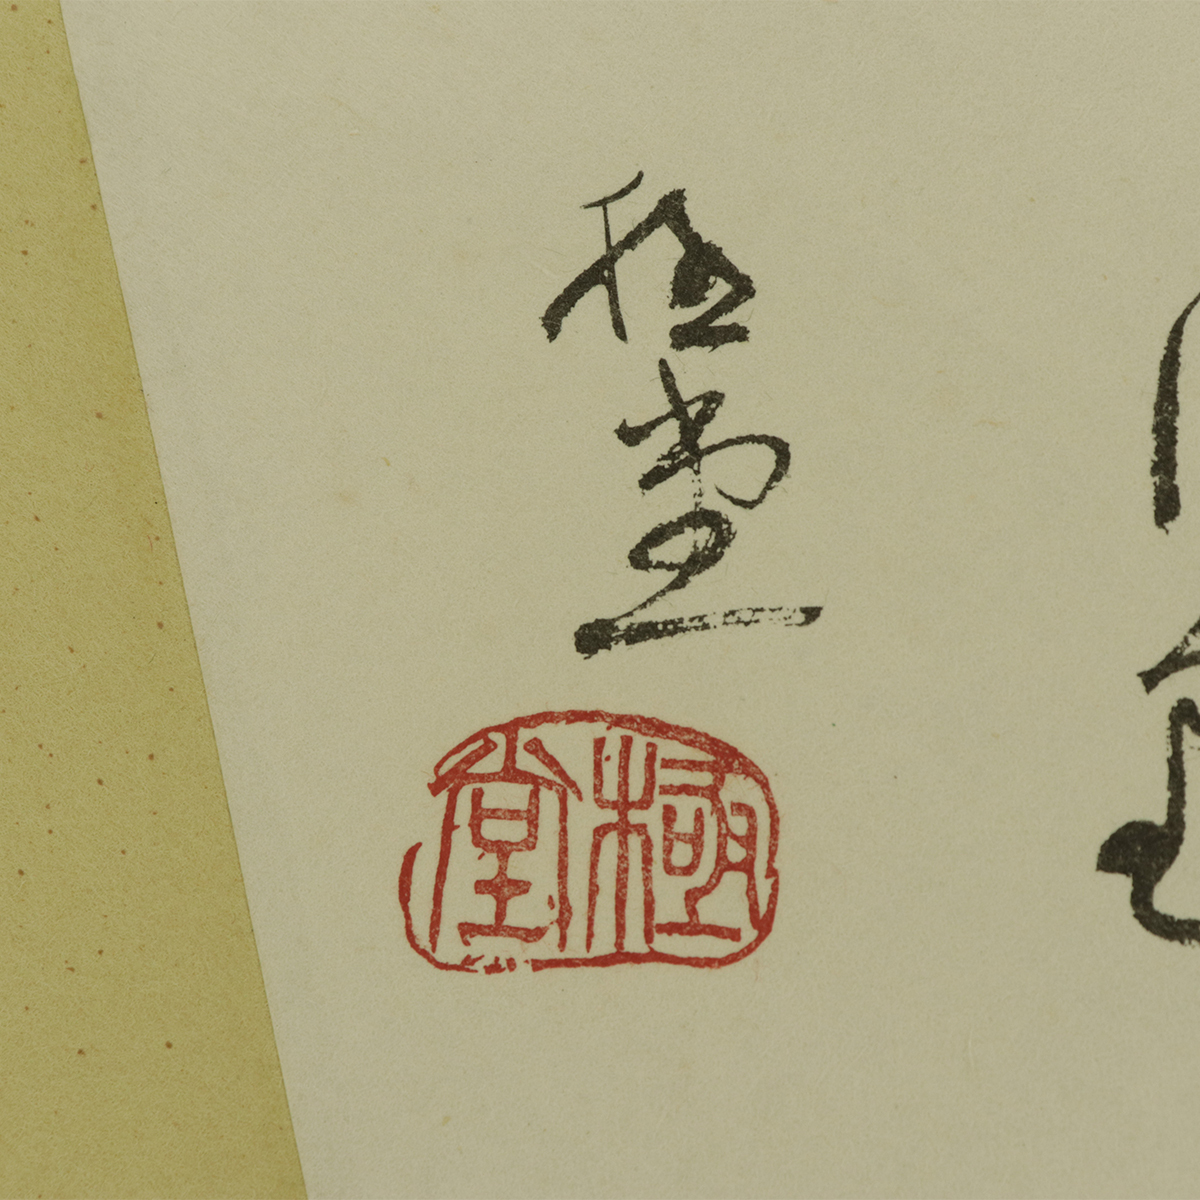 極堂
極堂